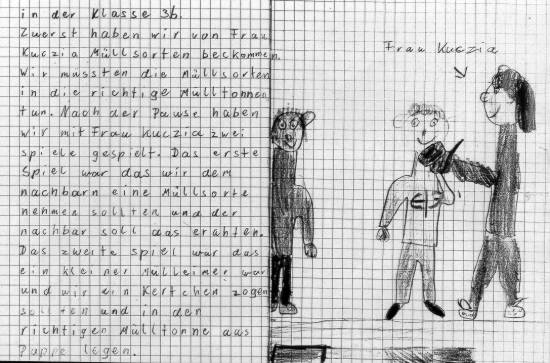 in der Klasse 3b.
Zuerst haben wir von Frau
Kuczia Müllsorten beckommen.
Wir mussten die Müllsorten
in die richtige Mülltonnen
tun. Nach der Pause haben
wir mit Frau Kuczia zwei
spiele gespielt. Das erste
Spiel war das wir dem
nachbarn eine Müllsorte
nehmen sollten und der
nachbar soll das erahten.
Das zweite spiel war das
ein kleiner Mülleimer war
und wir ein Kertchen zogen
sollten und in den
richtigen Mülltonne aus
Pappe legen.
Frau Kuczia